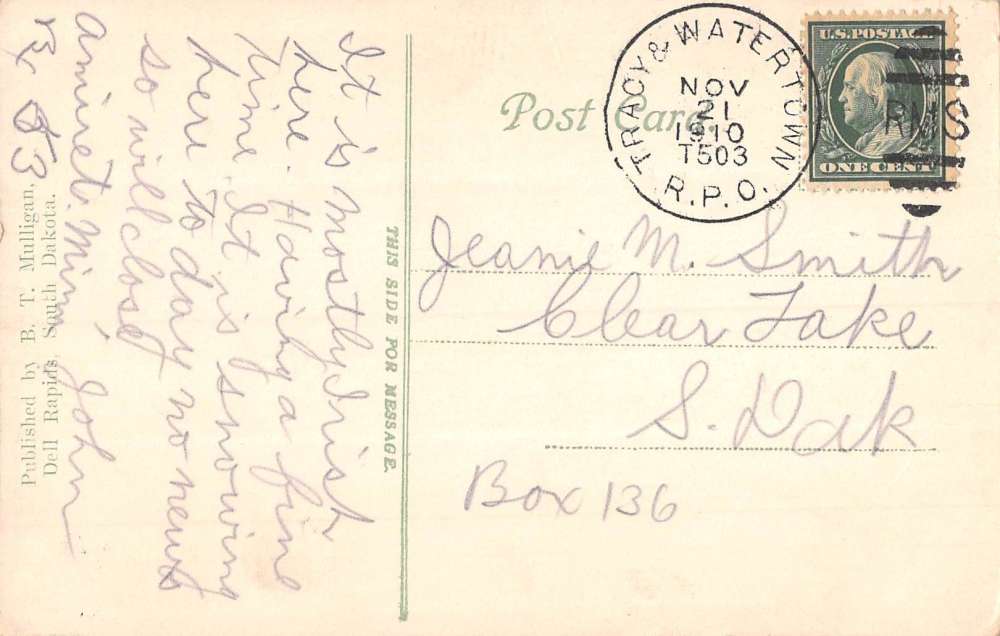 Post Card.
TRACY & WATERTOWN
NOV
21
1910
T503
R.P.O.
U.S. POSTAGE
ONE CENT
RMS
Jeanie M. Smith
Clear Lake
S. Dak
Box 136
THIS SIDE FOR MESSAGE.
It is mostly Irish
here. Having a fine
time. It is snowing
here to day no news
so will close
John
Amiret. Minn,
53
Published by B. T. Mulligan,
Dell Rapids, South Dakota.